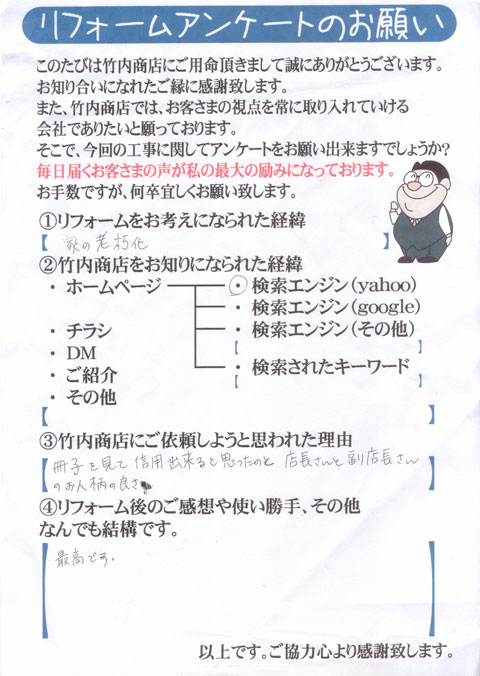 リフォームアンケートのお願い
このたびは竹内商店にご用命頂きまして誠にありがとうございます。
お知り合いになれたご縁に感謝致します。
また、竹内商店では、お客さまの視点を常に取り入れていける
会社でありたいと願っております。
そこで、今回の工事に関してアンケートをお願い出来ますでしょうか?
毎日届くお客さまの声が私の最大の励みになっております。
お手数ですが、何卒宜しくお願い致します。
①リフォームをお考えになられた経緯
【 家の老朽化 】
②竹内商店をお知りになられた経緯
・ホームページ ・検索エンジン(yahoo)
・検索エンジン(google)
・チラシ ・検索エンジン(その他)
・DM 【 】
・ご紹介 ・検索されたキーワード
・その他 【 】
【 】
③竹内商店にご依頼しようと思われた理由
【冊子を見て信用出来ると思ったのと 店長さんと副店長さん
のお人柄の良さ。】
④リフォーム後のご感想や使い勝手、その他
なんでも結構です。
【最高です。】
以上です。ご協力心より感謝致します。